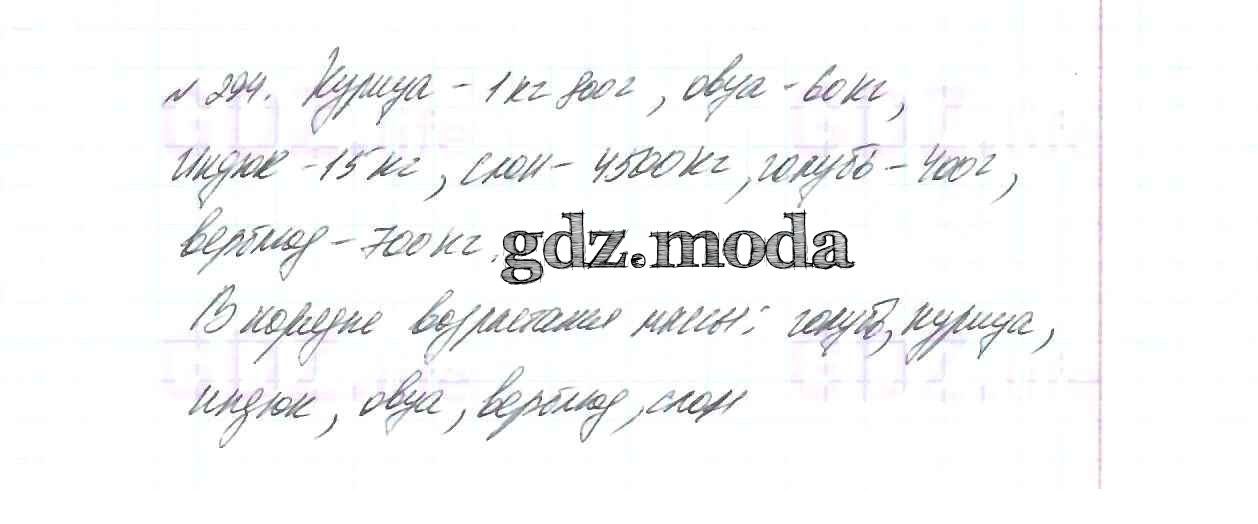 № 294. Курица – 1 кг 800 г, овца – 60 кг,
индюк – 15 кг, слон – 4500 кг, голубь – 400 г,
верблюд – 700 кг.
gdz.moda
В порядке возрастания массы: голубь, курица,
индюк, овца, верблюд, слон